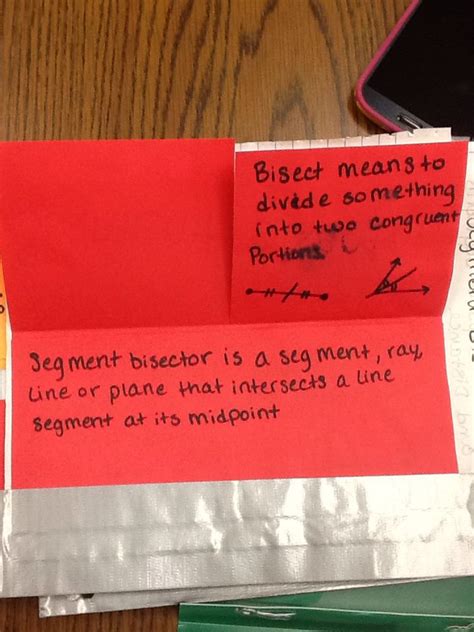 Bisect means to
divide something
into two congruent
Portions
Segment bisector is a segment, ray,
line or plane that intersects a line
segment at its midpoint